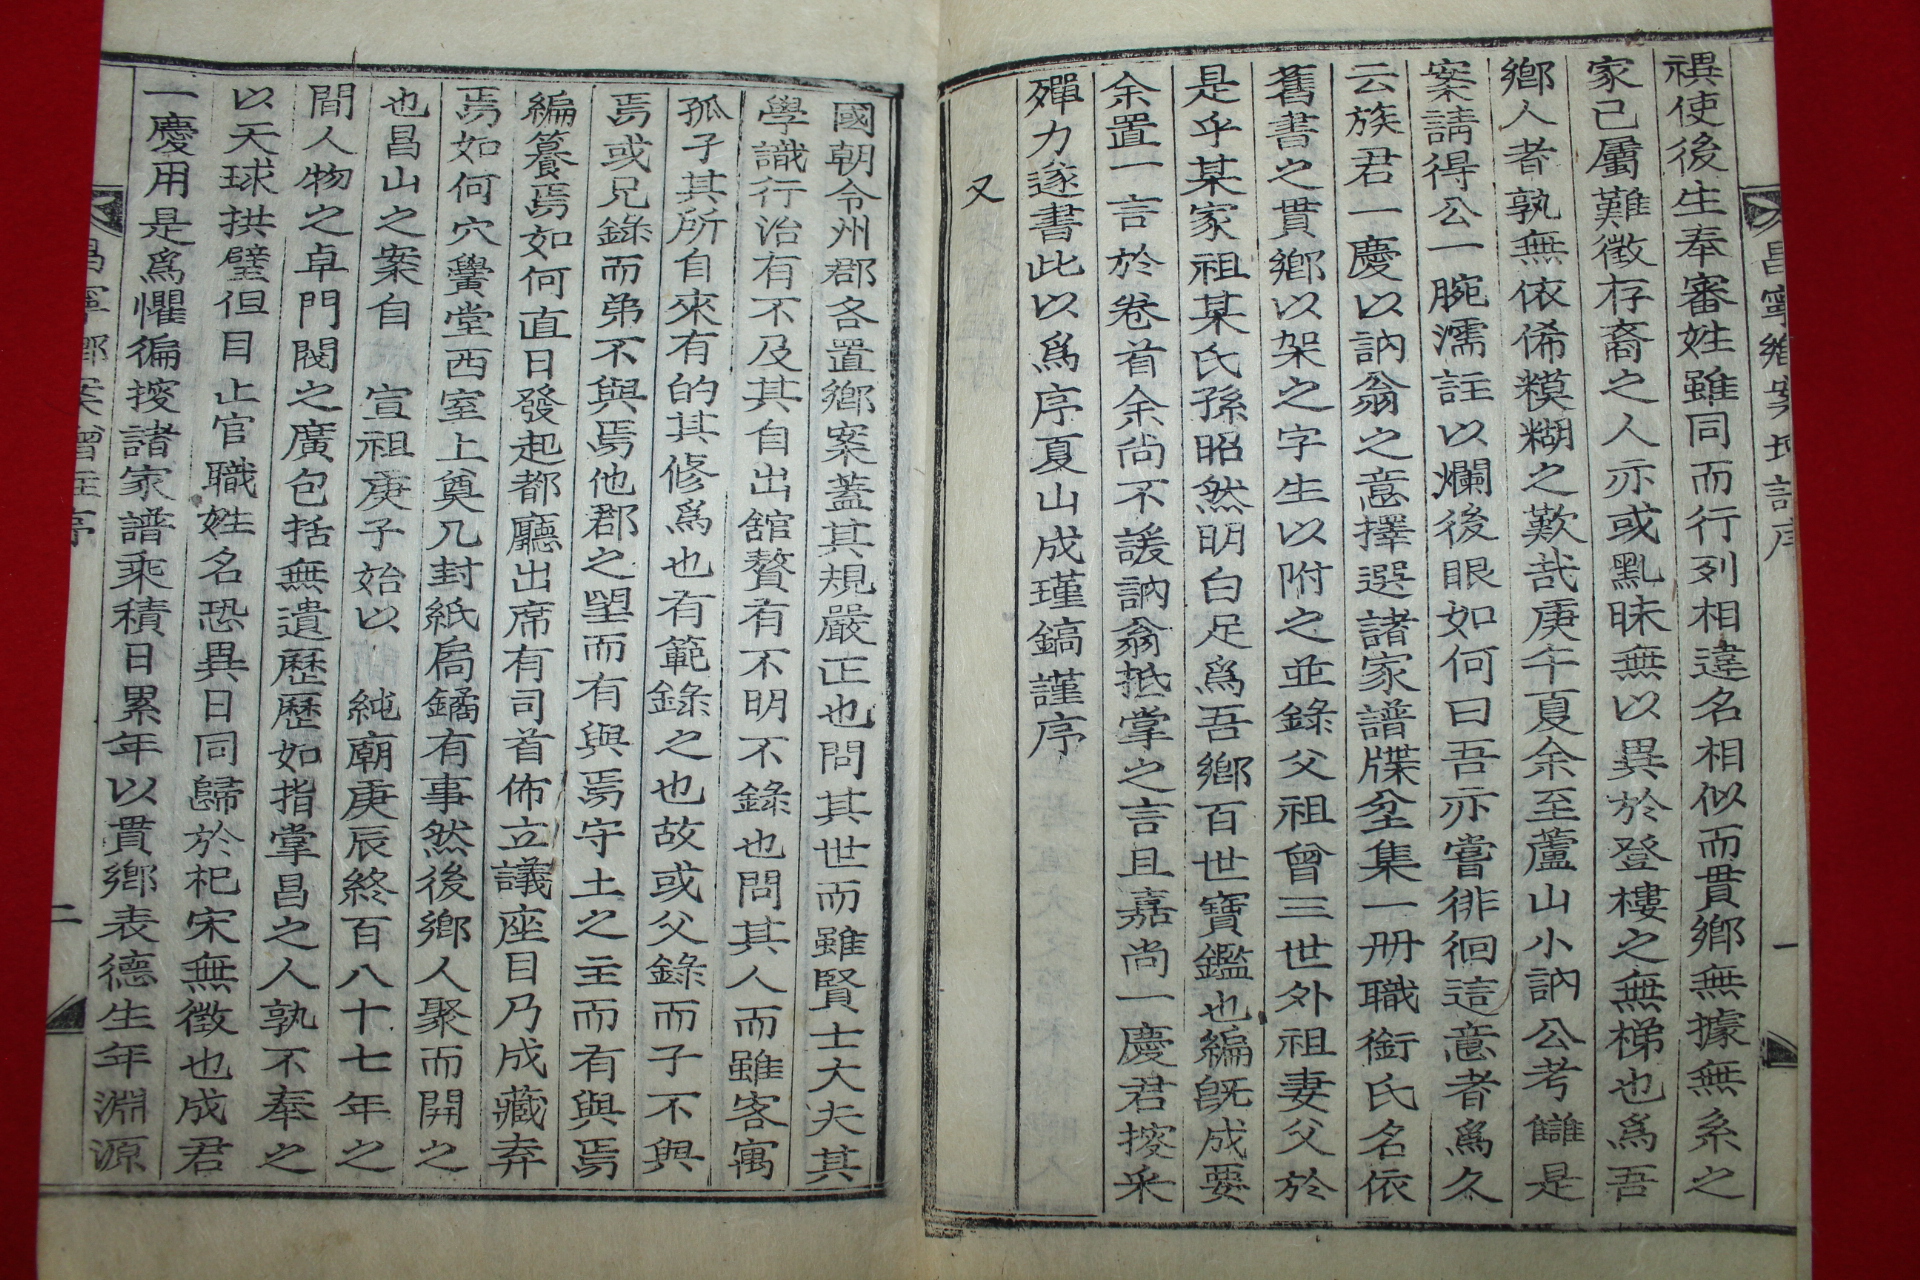 昌寧鄕案增註序
一
禩使後生奉審姓雖同而行列相違名相似而貫鄕無據無系之
家已屬難徵存裔之人亦或黑昧無以異於登樓之無梯也爲吾
鄕人者孰無依俙糢糊之歎哉庚午夏余至蘆山小訥公考讎是
案請得公一腕濡註以爛後眼如何曰吾亦嘗徘徊這意者爲久
云族君一慶以訥翁之意擇選諸家譜牒坌集一册職銜氏名依
舊書之貫鄕以架之字生以附之並錄父祖曾三世外祖妻父於
是乎某家祖某氏孫昭然明白足爲吾鄕百世寶鑑也編旣成要
余置一言於卷首余尙不諼訥翁抵掌之言且嘉尙一慶君搜采
殫力遂書此以爲序夏山成瑾鎬謹序
又
國朝令州郡各置鄕案蓋其規嚴正也問其世而雖賢士大夫其
學識行治有不及其自出舘贅有不明不錄也問其人而雖客寓
孤子其所自來有的其修爲也有範錄之也故或父錄而子不與
焉或兄錄而弟不與焉他郡之望而有與焉守土之主而有與焉
編纂焉如何直日發起都廳出席有司首佈立議座目乃成藏弆
焉如何穴黌堂西室上奠几封紙扃鐍有事然後鄕人聚而開之
也昌山之案自 宣祖庚子始以 純廟庚辰終百八十七年之
間人物之卓門閥之廣包括無遺歷歷如指掌昌之人孰不奉之
以天球拱璧但目止官職姓名恐異日同歸於杞宋無徵也成君
一慶用是爲懼徧搜諸家譜乘積日累年以貫鄕表德生年淵源
昌寧鄕案增註序
二